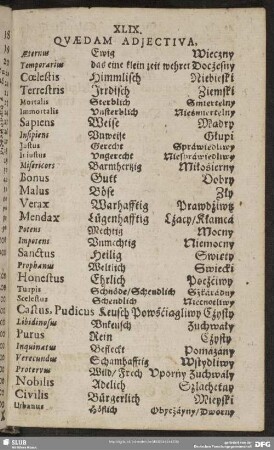 XLIX.
QVÆDAM ADJECTIVA.
Æternus Ewig Wieczny
Temporarius das eine klein zeit wehret Docżesny
Cœlestis Himmlisch Niebieski
Terrestris Jrrdisch Ziemski
Mortalis Sterblich Smiertelny
Immortalis Vnsterblich Nieśmiertelny
Sapiens Weise Mądry
Insipiens Vnweise Głupi
Justus Gerecht Spráwiedliwy
Injustus Vngerecht Niespráwiedliwy
Misericors Barmhertzig Miłosierny
Bonus Gutt Dobry
Malus Böse Zły
Verax Warhafftig Prawdźiwy
Mendax Lügenhafftig Łżacy/Kłamcá
Potens Mechtig Mocny
Impotens Vnmechtig Niemocny
Sanctus Heilig Swięty
Prophanus Weltlich Swiecki
Honestus Ehrlich Pocżćiwy
Turpis Schnöde/Schendlich Szkárádny
Scelestus Schendlich Niecnotliwy
Castus, Pudicus Keusch Powśćiagliwy Cżysty
Libidinosus Vnkeusch Zuchwáły
Purus Rein Cżysty
Inquinatus Befleckt Pomazány
Verecundus Schamhafftig Wstydliwy
Protervus Wild/Frech Vporny Zuchwáły
Nobilis Adelich Szláchetny
Civilis Bürgerlich Mieyski
Urbanus Höflich Obycżáyny/Dworny
SLUB
DFG